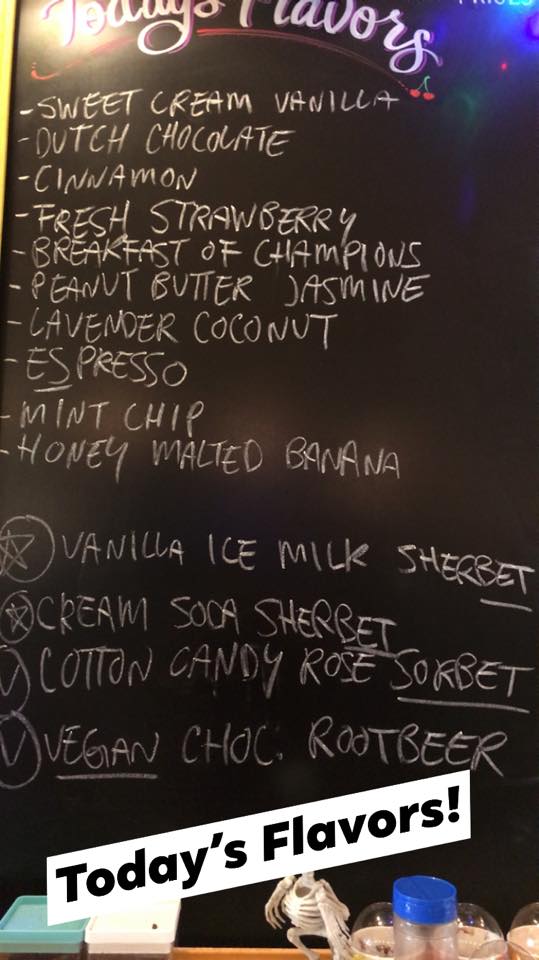 Today's Flavors
PRICES
- SWEET CREAM VANILLA
- DUTCH CHOCOLATE
- CINNAMON
- FRESH STRAWBERRY
- BREAKFAST OF CHAMPIONS
- PEANUT BUTTER JASMINE
- LAVENDER COCONUT
- ESPRESSO
- MINT CHIP
- HONEY MALTED BANANA
VANILLA ICE MILK SHERBET
CREAM SODA SHERBET
V COTTON CANDY ROSE SORBET
V VEGAN CHOC. ROOTBEER
Today's Flavors!